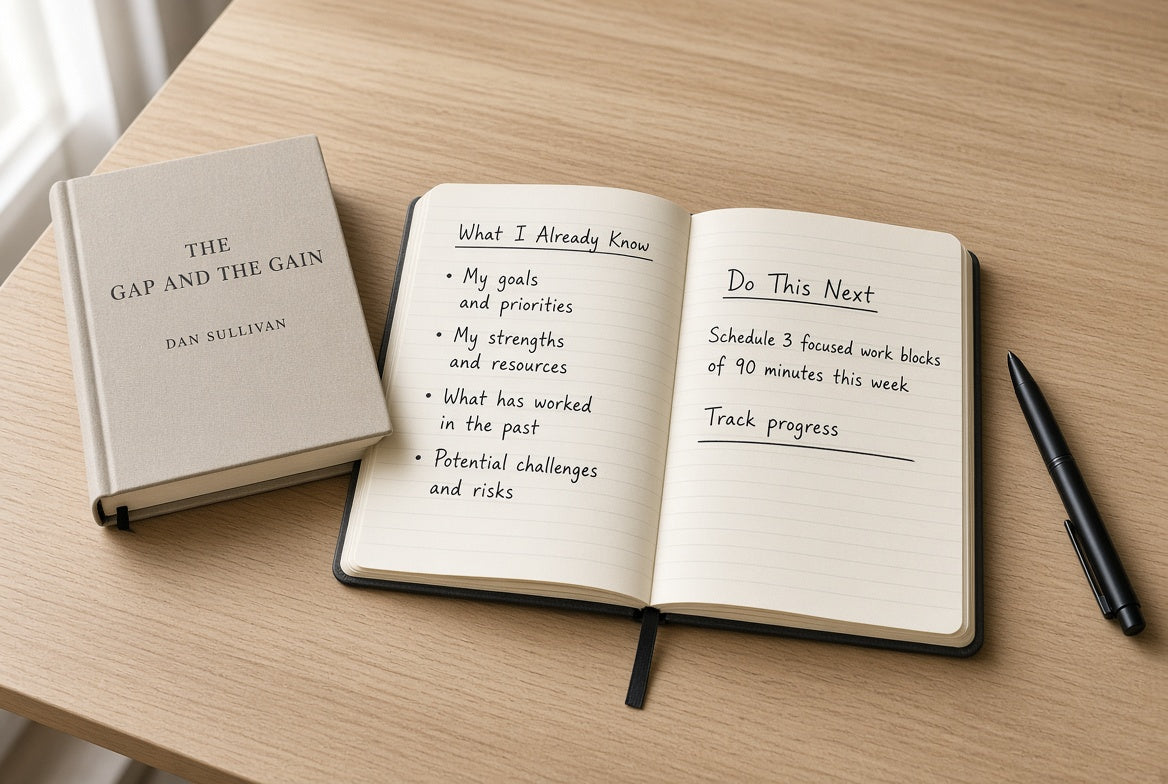 THE
GAP AND THE GAIN
DAN SULLIVAN
What I Already Know
• My goals
and priorities
• My strengths
and resources
• What has worked
in the past
• Potential challenges
and risks
Do This Next
Schedule 3 focused work blocks
of 90 minutes this week
Track progress